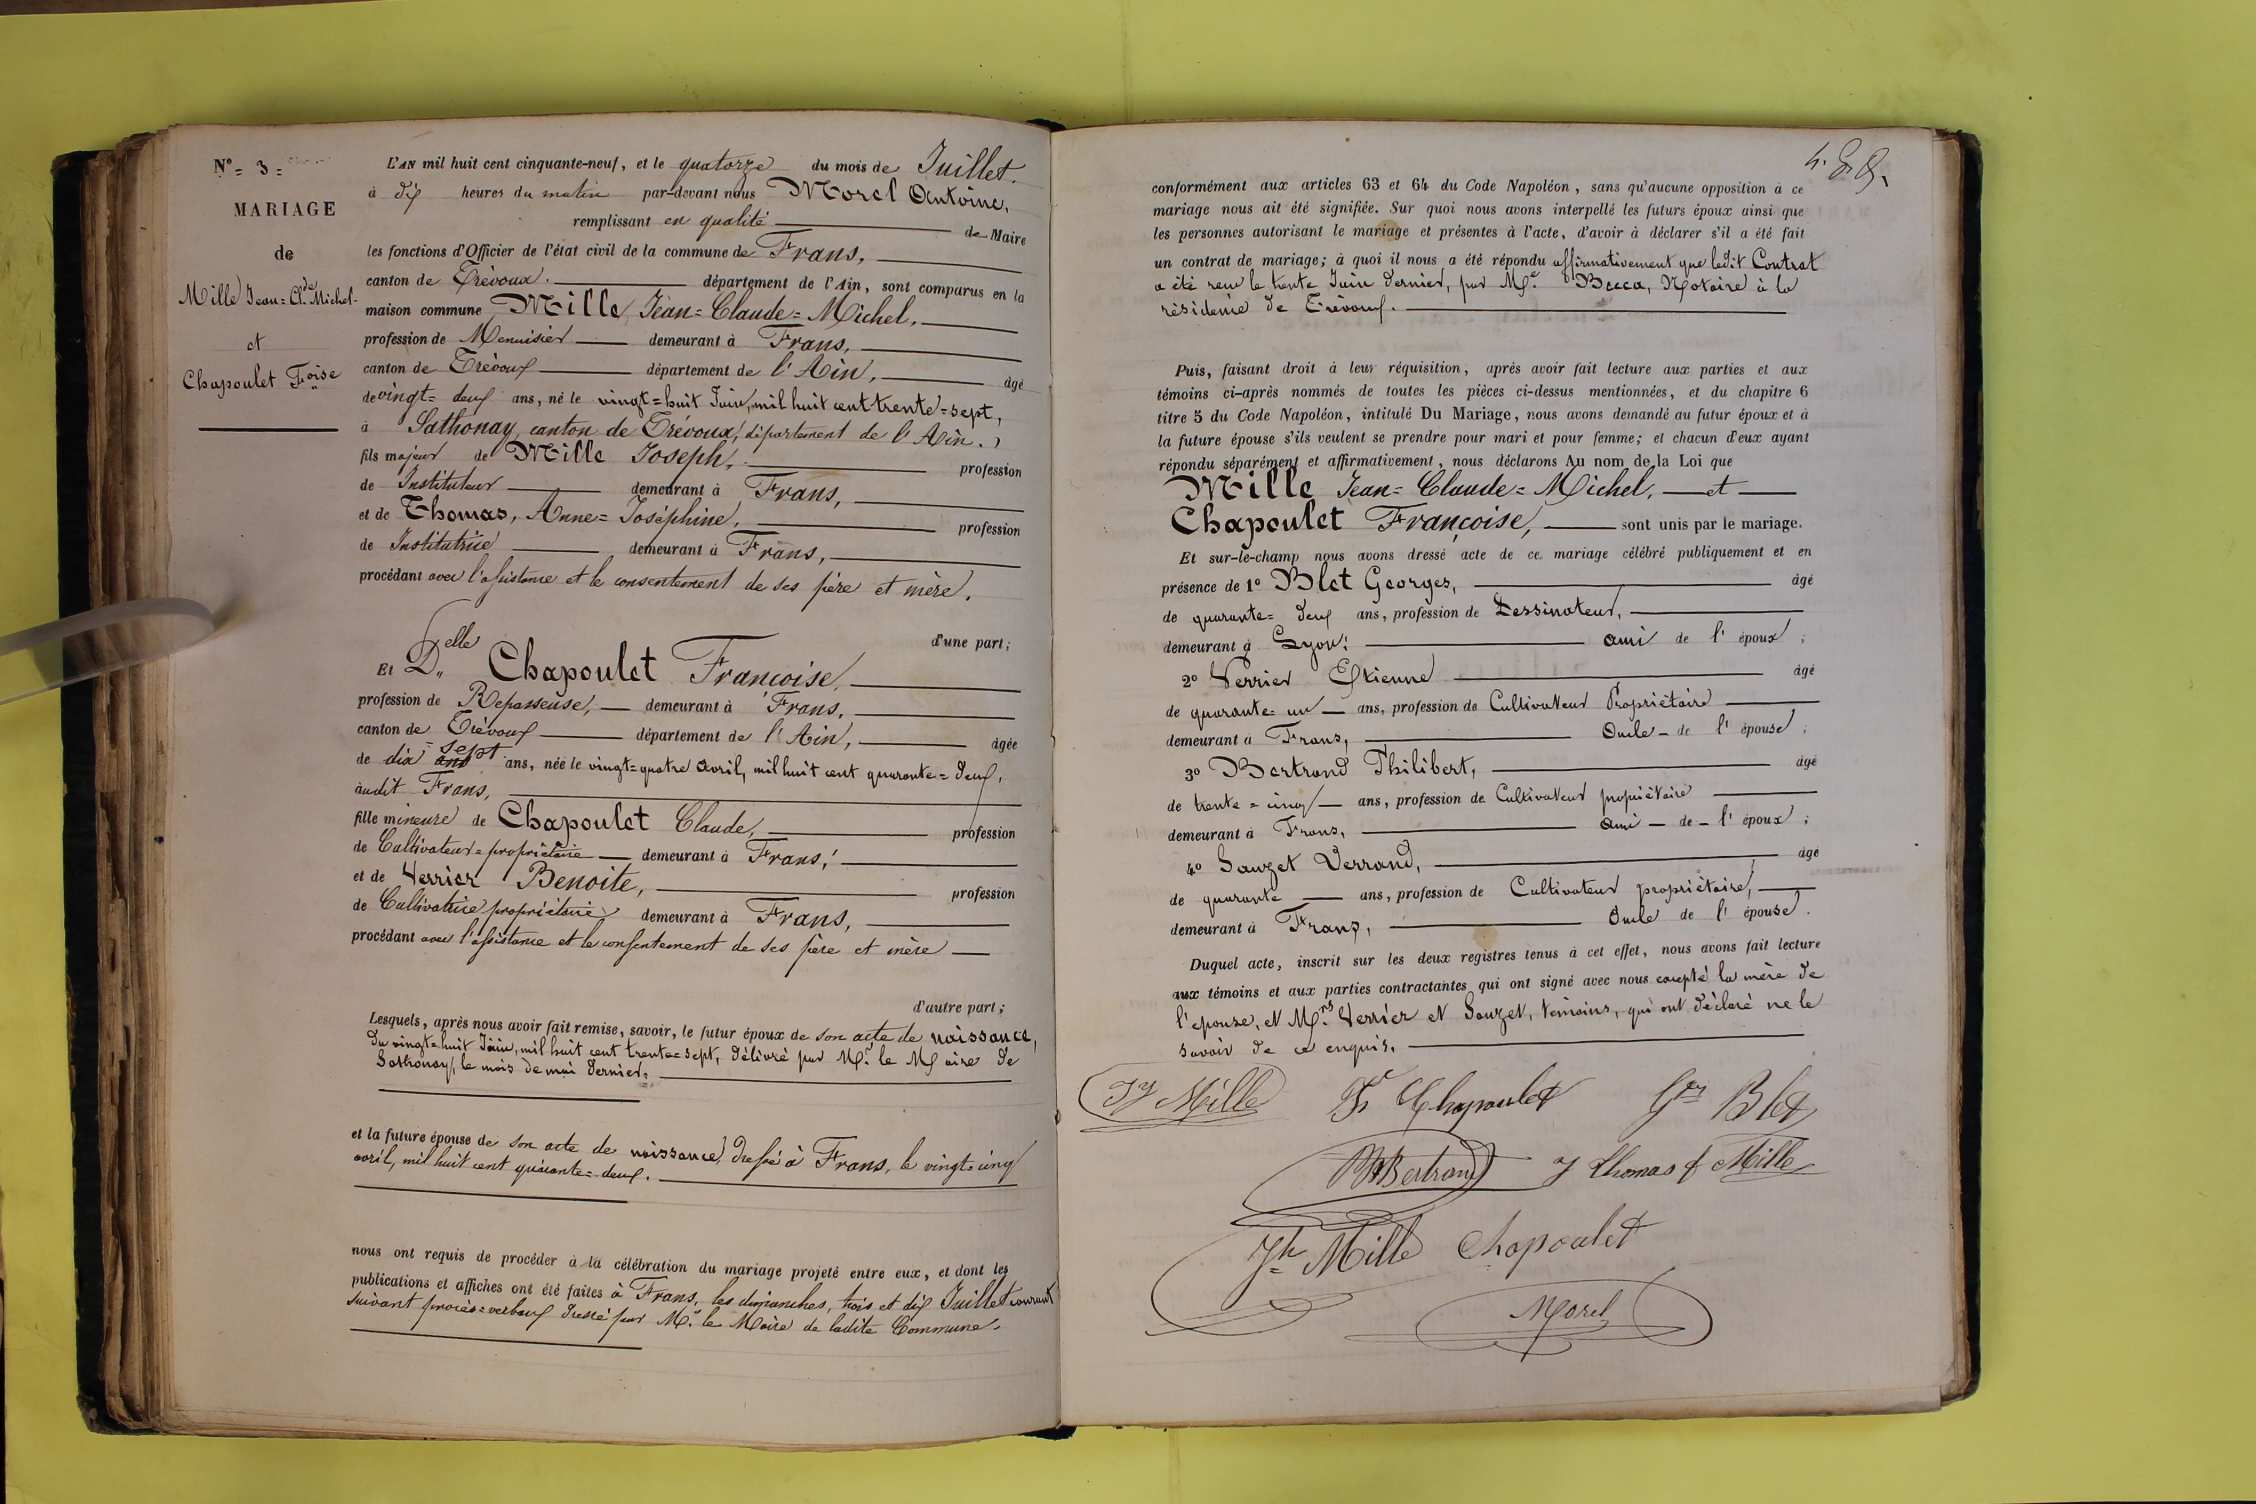 N° = 3 =
MARIAGE
de
Mille Jean=Cl.de Michel.
et
Chapoulet F.oise
L'AN mil huit cent cinquante-neuf, et le quatorze du mois de Juillet.
à dix heures du matin par-devant nous Morel Antoine,
remplissant en qualité de Maire
les fonctions d'Officier de l'état civil de la commune de Frans,
canton de Trévoux. département de l'Ain, sont comparus en la
maison commune Mille Jean=Claude=Michel,
profession de Menuisier demeurant à Frans,
canton de Trévoux département de l'Ain, âgé
de vingt=deux ans, né le vingt=huit Juin, mil huit cent trente=sept,
à Sathonay, canton de Trévoux, département de l'Ain.,
fils majeur de Mille Joseph,
profession
de Instituteur demeurant à Frans,
et de Thomas, Anne=Joséphine, profession
de Institutrice demeurant à Frans,
procédant avec l'assistance et le consentement de ses père et mère.
d'une part;
Et D.elle Chapoulet Françoise,
profession de Repasseuse, demeurant à Frans,
canton de Trévoux département de l'Ain, âgée
de dix=sept ans ans, née le vingt=quatre avril, mil huit cent quarante=deux,
audit Frans,
fille mineure de Chapoulet Claude, profession
de Cultivateur=propriétaire demeurant à Frans,
et de Verrier Benoite, profession
de Cultivatrice propriétaire demeurant à Frans,
procédant avec l'assistance et le consentement de ses père et mère
d'autre part;
Lesquels, après nous avoir fait remise, savoir, le futur époux de son acte de naissance,
du vingt=huit Juin, mil huit cent trente=sept, délivré par Mr. le Maire de
Sathonay, le mois de mai dernier.
et la future épouse de son acte de naissance, dressé à Frans, le vingt=cinq
avril, mil huit cent quarante=deux.
nous ont requis de procéder à la célébration du mariage projeté entre eux, et dont les
publications et affiches ont été faites à Frans, les dimanches, trois et dix Juillet courant
suivant procès=verbaux dressé par Mr. le Maire de ladite Commune.
conformément aux articles 63 et 64 du Code Napoléon, sans qu'aucune opposition à ce
mariage nous ait été signifiée. Sur quoi nous avons interpellé les futurs époux ainsi que
les personnes autorisant le mariage et présentes à l'acte, d'avoir à déclarer s'il a été fait
un contrat de mariage; à quoi il nous a été répondu affirmativement que ledit Contrat
a été reçu le trente Juin dernier, par Me. Bucca, Notaire à la
résidence de Trévoux.
Puis, faisant droit à leur réquisition, après avoir fait lecture aux parties et aux
témoins ci-après nommés de toutes les pièces ci-dessus mentionnées, et du chapitre 6
titre 5 du Code Napoléon, intitulé Du Mariage, nous avons demandé au futur époux et à
la future épouse s'ils veulent se prendre pour mari et pour femme; et chacun d'eux ayant
répondu séparément et affirmativement, nous déclarons Au nom de la Loi que
Mille Jean=Claude=Michel, et
Chapoulet Françoise, sont unis par le mariage.
Et sur-le-champ nous avons dressé acte de ce mariage célébré publiquement et en
présence de 1° Blet Georges, âgé
de quarante=deux ans, profession de Dessinateur,
demeurant à Lyon; ami de l'époux;
2° Verrier Etienne âgé
de quarante=un ans, profession de Cultivateur Propriétaire
demeurant à Frans, Oncle de l'épouse;
3° Bertrand Philibert, âgé
de trente=cinq ans, profession de Cultivateur propriétaire
demeurant à Frans, ami de l'époux;
4° Sauzet Verrand, âgé
de quarante ans, profession de Cultivateur propriétaire,
demeurant à Frans, Oncle de l'épouse.
Duquel acte, inscrit sur les deux registres tenus à cet effet, nous avons fait lecture
aux témoins et aux parties contractantes qui ont signé avec nous excepté la mère de
l'épouse, et Mrs. Verrier et Sauzet, témoins, qui ont déclaré ne le
savoir de ce enquis.
Mille Fse Chapoulet Ges Blet
Bertrand J Thomas f Mille
Jh Mille Chapoulet
Morel